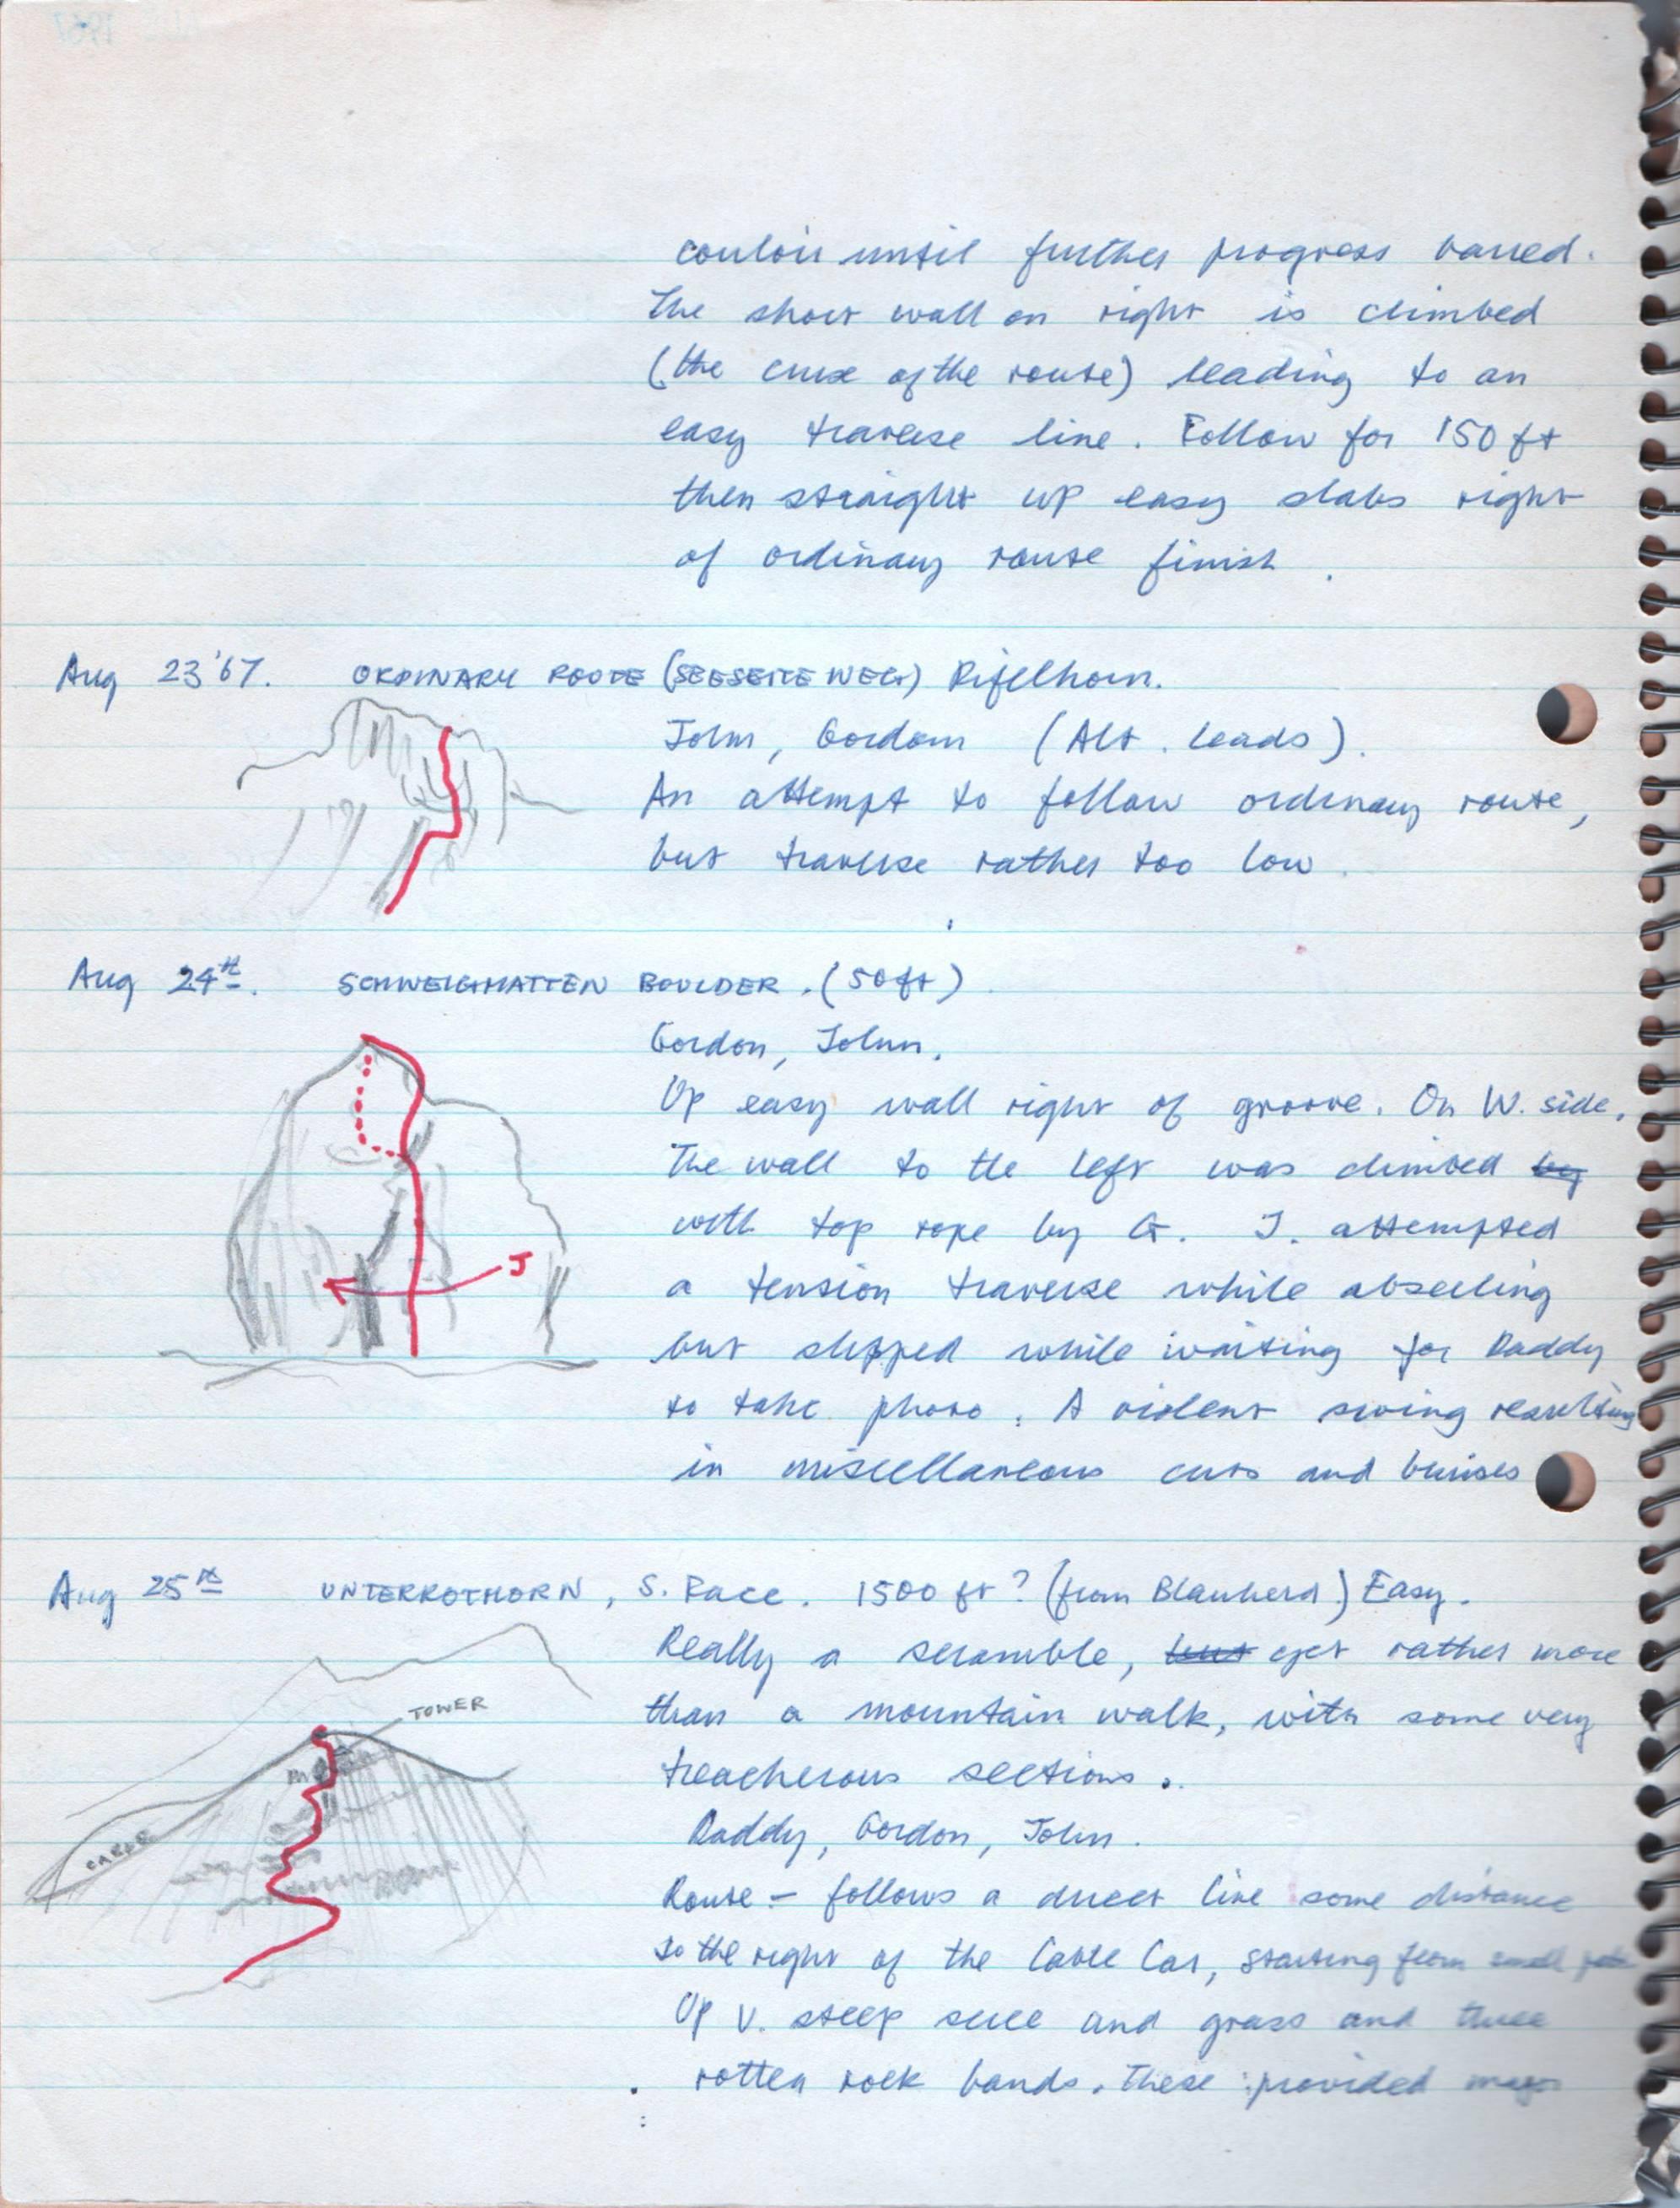 couloir until further progress barred.
The short wall on right is climbed
(the crux of the route) leading to an
easy traverse line. Follow for 150 ft
then straight up easy slabs right
of ordinary route finish.
Aug 23 '67. ORDINARY ROUTE (SEESEITE WEG) Rifelhorn.
John, Gordon (Alt. leads).
An attempt to follow ordinary route,
but traverse rather too low.
Aug 24th. SCHWEIGMATTEN BOULDER. (50ft)
Gordon, John.
Up easy wall right of groove. On W. side.
The wall to the left was climbed by
with top rope by G. J. attempted
a tension traverse while abseiling
but slipped while waiting for Daddy
to take photo. A violent swing resulting
in miscellaneous cuts and bruises
J
Aug 25th UNTERROTHORN, S. Face. 1500 ft? (from Blauherd) Easy.
Really a scramble, but yet rather more
than a mountain walk, with some very
treacherous sections.
Daddy, Gordon, John.
Route - follows a direct line some distance
to the right of the Cable Car, starting from small
Up V. steep scree and grass and three
rotten rock bands. These provided major
TOWER
CABLE
1967